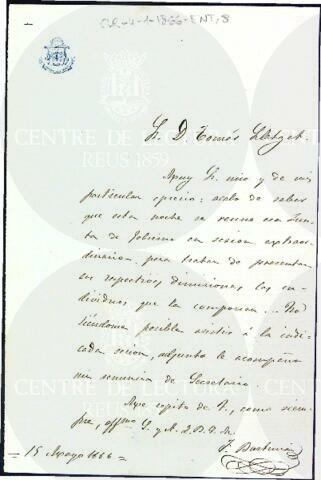 CLR-4-1-1866-ENT,8
CENTRE DE LECTURA
REUS 1859
S. D. Tomás
Muy Sr. mio y de mi
particular aprecio: acabo de saber
que esta noche se reune esa Jun-
ta de Gobierno en sesion extraor-
dinaria para tratar de presentar
sus respectivas dimisiones los in-
dividuos que la componen. No
siéndome posible asistir á la indi-
cada sesion, adjunta le acompaño
mi renuncia de Secretario.
repito de V., como siem-
pre, affmo. S. y A. Q. B. S. M.
15 Mayo 1866